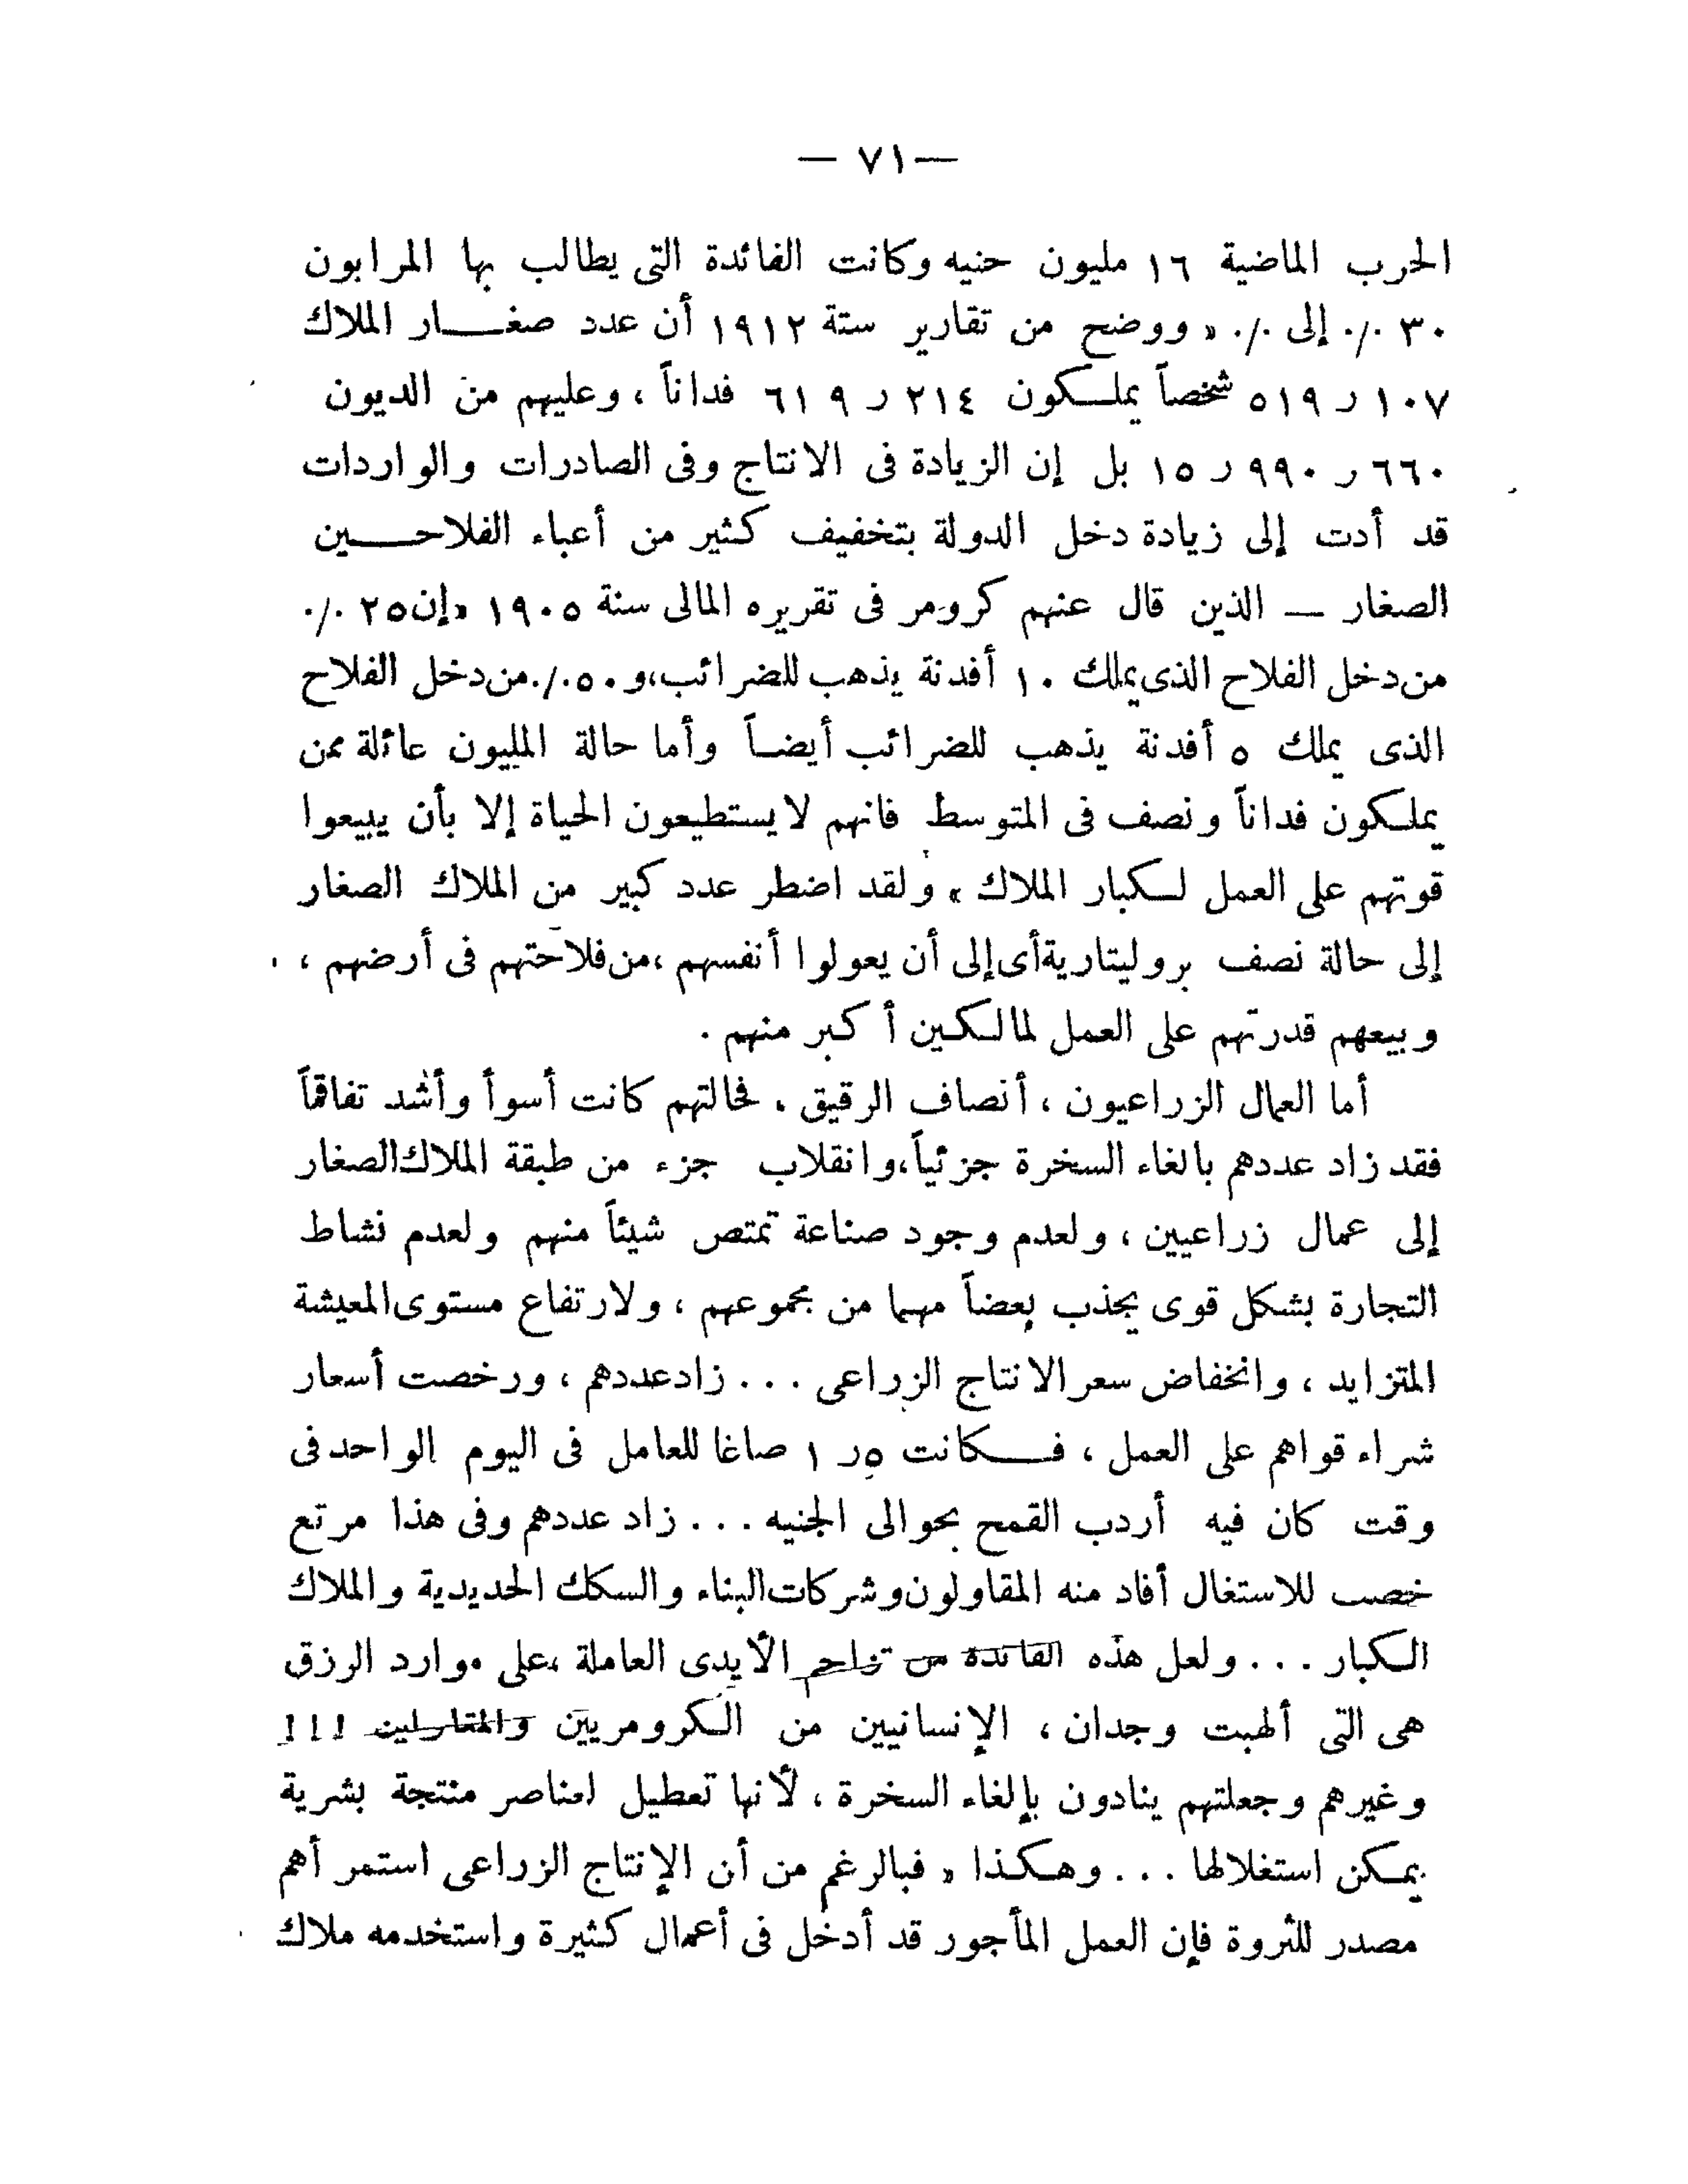 — ٧١ —
الحرب الماضية ١٦ مليون حنيه وكانت الفائدة التى يطالب بها المرابون
٣٠ ٪ إلى ٪ « ووضح من تقارير ستة ١٩١٢ أن عدد صغار الملاك
١٠٧ ر ٥١٩ شخصاً يملكون ٢١٤ ر ٦١٩ فداناً ، وعليهم من الديون
٦٦٠ ر ٩٩٠ ر ١٥ بل إن الزيادة فى الانتاج وفى الصادرات والواردات
قد أدت إلى زيادة دخل الدولة بتخفيف كثير من أعباء الفلاحين
الصغار — الذين قال عنهم كرومر فى تقريره المالى سنة ١٩٠٥ «إن ٢٥ ٪
من دخل الفلاح الذى يملك ١٠ أفدنة يذهب للضرائب،و ٥٠٪ من دخل الفلاح
الذى يملك ٥ أفدنة يذهب للضرائب أيضاً وأما حالة المليون عائلة ممن
يملكون فداناً ونصف فى المتوسط فانهم لا يستطيعون الحياة إلا بأن يبيعوا
قوتهم على العمل لكبار الملاك » ولقد اضطر عدد كبير من الملاك الصغار
إلى حالة نصف بروليتارية أى إلى أن يعولوا أنفسهم ،من فلاحتهم فى أرضهم ،
وبيعهم قدرتهم على العمل لمالكين أكبر منهم .
أما العمال الزراعيون ، أنصاف الرقيق . فحالتهم كانت أسوأ وأشد تفاقماً
فقد زاد عددهم بالغاء السخرة جزئياً،وانقلاب جزء من طبقة الملاك الصغار
إلى عمال زراعيين ، ولعدم وجود صناعة تمتص شيئاً منهم ولعدم نشاط
التجارة بشكل قوى يجذب بعضاً مهما من مجموعهم ، ولارتفاع مستوى المعيشة
المتزايد ، وانخفاض سعر الانتاج الزراعى . . . زاد عددهم ، ورخصت أسعار
شراء قواهم على العمل ، فكانت ٥ر ١ صاغا للعامل فى اليوم الواحد فى
وقت كان فيه أردب القمح بحوالى الجنيه . . . زاد عددهم وفى هذا مرتع
خصب للاستغلال أفاد منه المقاولون وشركات البناء والسكك الحديدية والملاك
الكبار . . . ولعل هذه الفائدة من تزاحم الأيدى العاملة ،على موارد الرزق
هى التى ألهبت وجدان ، الإنسانيين من الكرومريين والمقاولين !!!
وغيرهم وجعلتهم ينادون بإلغاء السخرة ، لأنها تعطيل لعناصر منتجة بشرية
يمكن استغلالها . . . وهكذا « فبالرغم من أن الإنتاج الزراعى استمر أهم
مصدر للثروة فإن العمل المأجور قد أدخل فى أعمال كثيرة واستخدمه ملاك